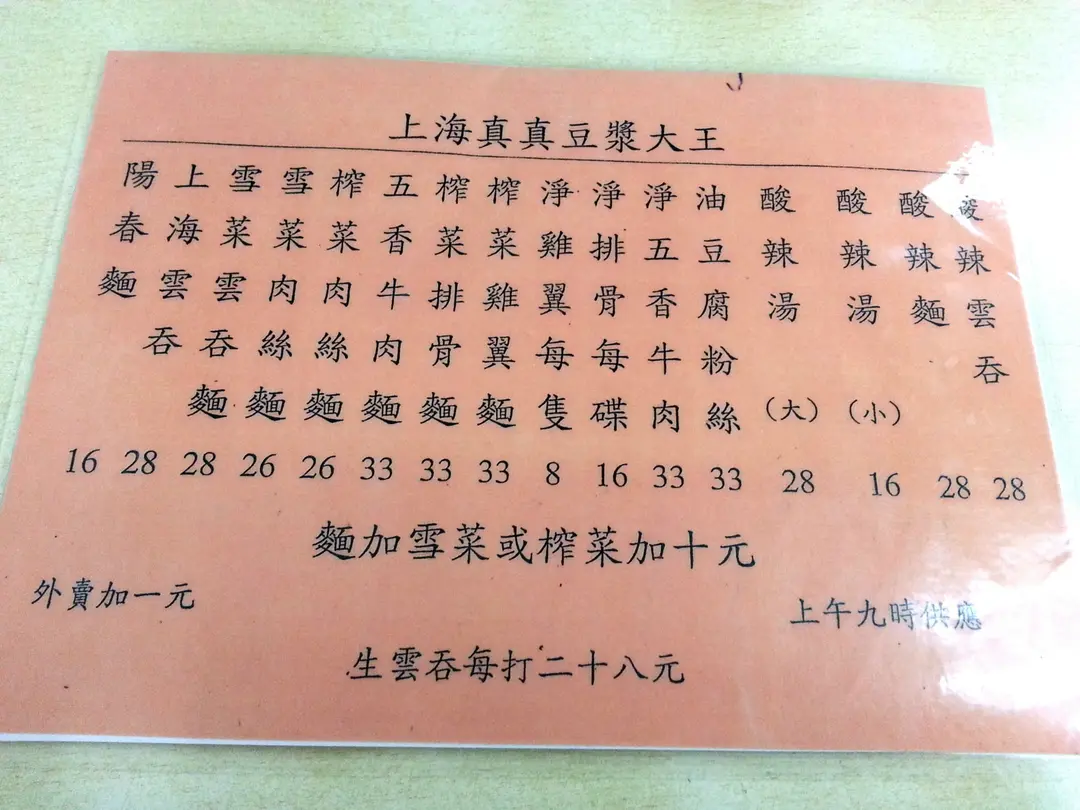 上海真真豆漿大王
陽春麵 16
上海雲吞 28
雪菜雲吞麵 28
雪菜肉絲麵 26
榨菜肉絲麵 26
五香牛肉麵 33
榨菜排骨麵 33
榨菜雞翼麵 33
淨雞翼每隻 8
淨排骨每碟 16
淨五香牛肉 33
油豆腐粉絲 33
酸辣湯（大） 28
酸辣湯（小） 16
酸辣麵 28
酸辣雲吞 28
麵加雪菜或榨菜加十元
外賣加一元
上午九時供應
生雲吞每打二十八元